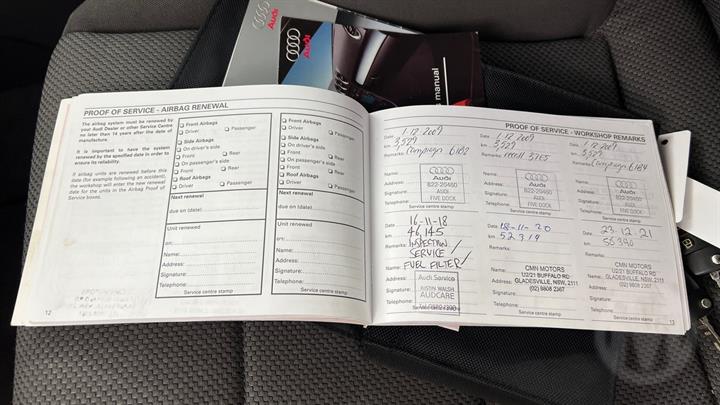 Audi
Audi
manual
PROOF OF SERVICE - AIRBAG RENEWAL
The airbag system must be renewed by
your Audi Dealer or other Service Centre
no later than 14 years after the date of
manufacture.
It is important to have the system
renewed by the specified date in order to
ensure its reliability.
If airbag units are renewed before this
date (for example following an accident),
the workshop will enter the new renewal
date for the units in the Airbag Proof of
Service boxes.
12
Front Airbags
Driver Passenger
Side Airbags
On driver's side
Front Rear
On passenger's side
Front Rear
Roof Airbag
Driver Passenger
Next renewal
due on (date)
Unit renewed
on:
Name:
Address:
Signature:
Telephone:
Service centre stamp
Front Airbags
Driver Passenger
Side Airbags
On driver's side
Front Rear
On passenger's side
Front Rear
Roof Airbag
Driver Passenger
Next renewal
due on (date)
Unit renewed
on:
Name:
Address:
Signature:
Telephone:
Service centre stamp
PROOF OF SERVICE - WORKSHOP REMARKS
Date 1.12.2009
km 3,529
Remarks: Campaign 6182
Name:
Address:
Signature:
Telephone:
Audi
822-20460
AUDI
FIVE DOCK
Service centre stamp
Date 1.12.2009
km 3,529
Remarks: recall
Name:
Address:
Signature:
Telephone:
Audi
822-20460
AUDI
FIVE DOCK
Service centre stamp
Date 1.12.2009
km 3,529
Remarks: Campaign 6184
Name:
Address:
Signature:
Telephone:
Audi
822-20460
AUDI
FIVE DOCK
Service centre stamp
Date 16-11-18
km 46,145
Remarks: INSPECTION
SERVICE
FUEL FILTER
Name:
Address: Audi Service
Signature: JUSTIN WALSH
Telephone: AUDCARE
Service centre stamp
Date 18-11-20
km 52319
Remarks:
Name: CMN MOTORS
Address: U2/21 BUFFALO RD
Signature: GLADESVILLE, NSW, 2111
Telephone: (02) 9808 2367
Service centre stamp
Date 23.12.21
km
Remarks:
CMN MOTORS
U2/21 BUFFALO RD
GLADESVILLE, NSW, 2111
(02) 9808 2367
Telephone:
Service centre stamp
13